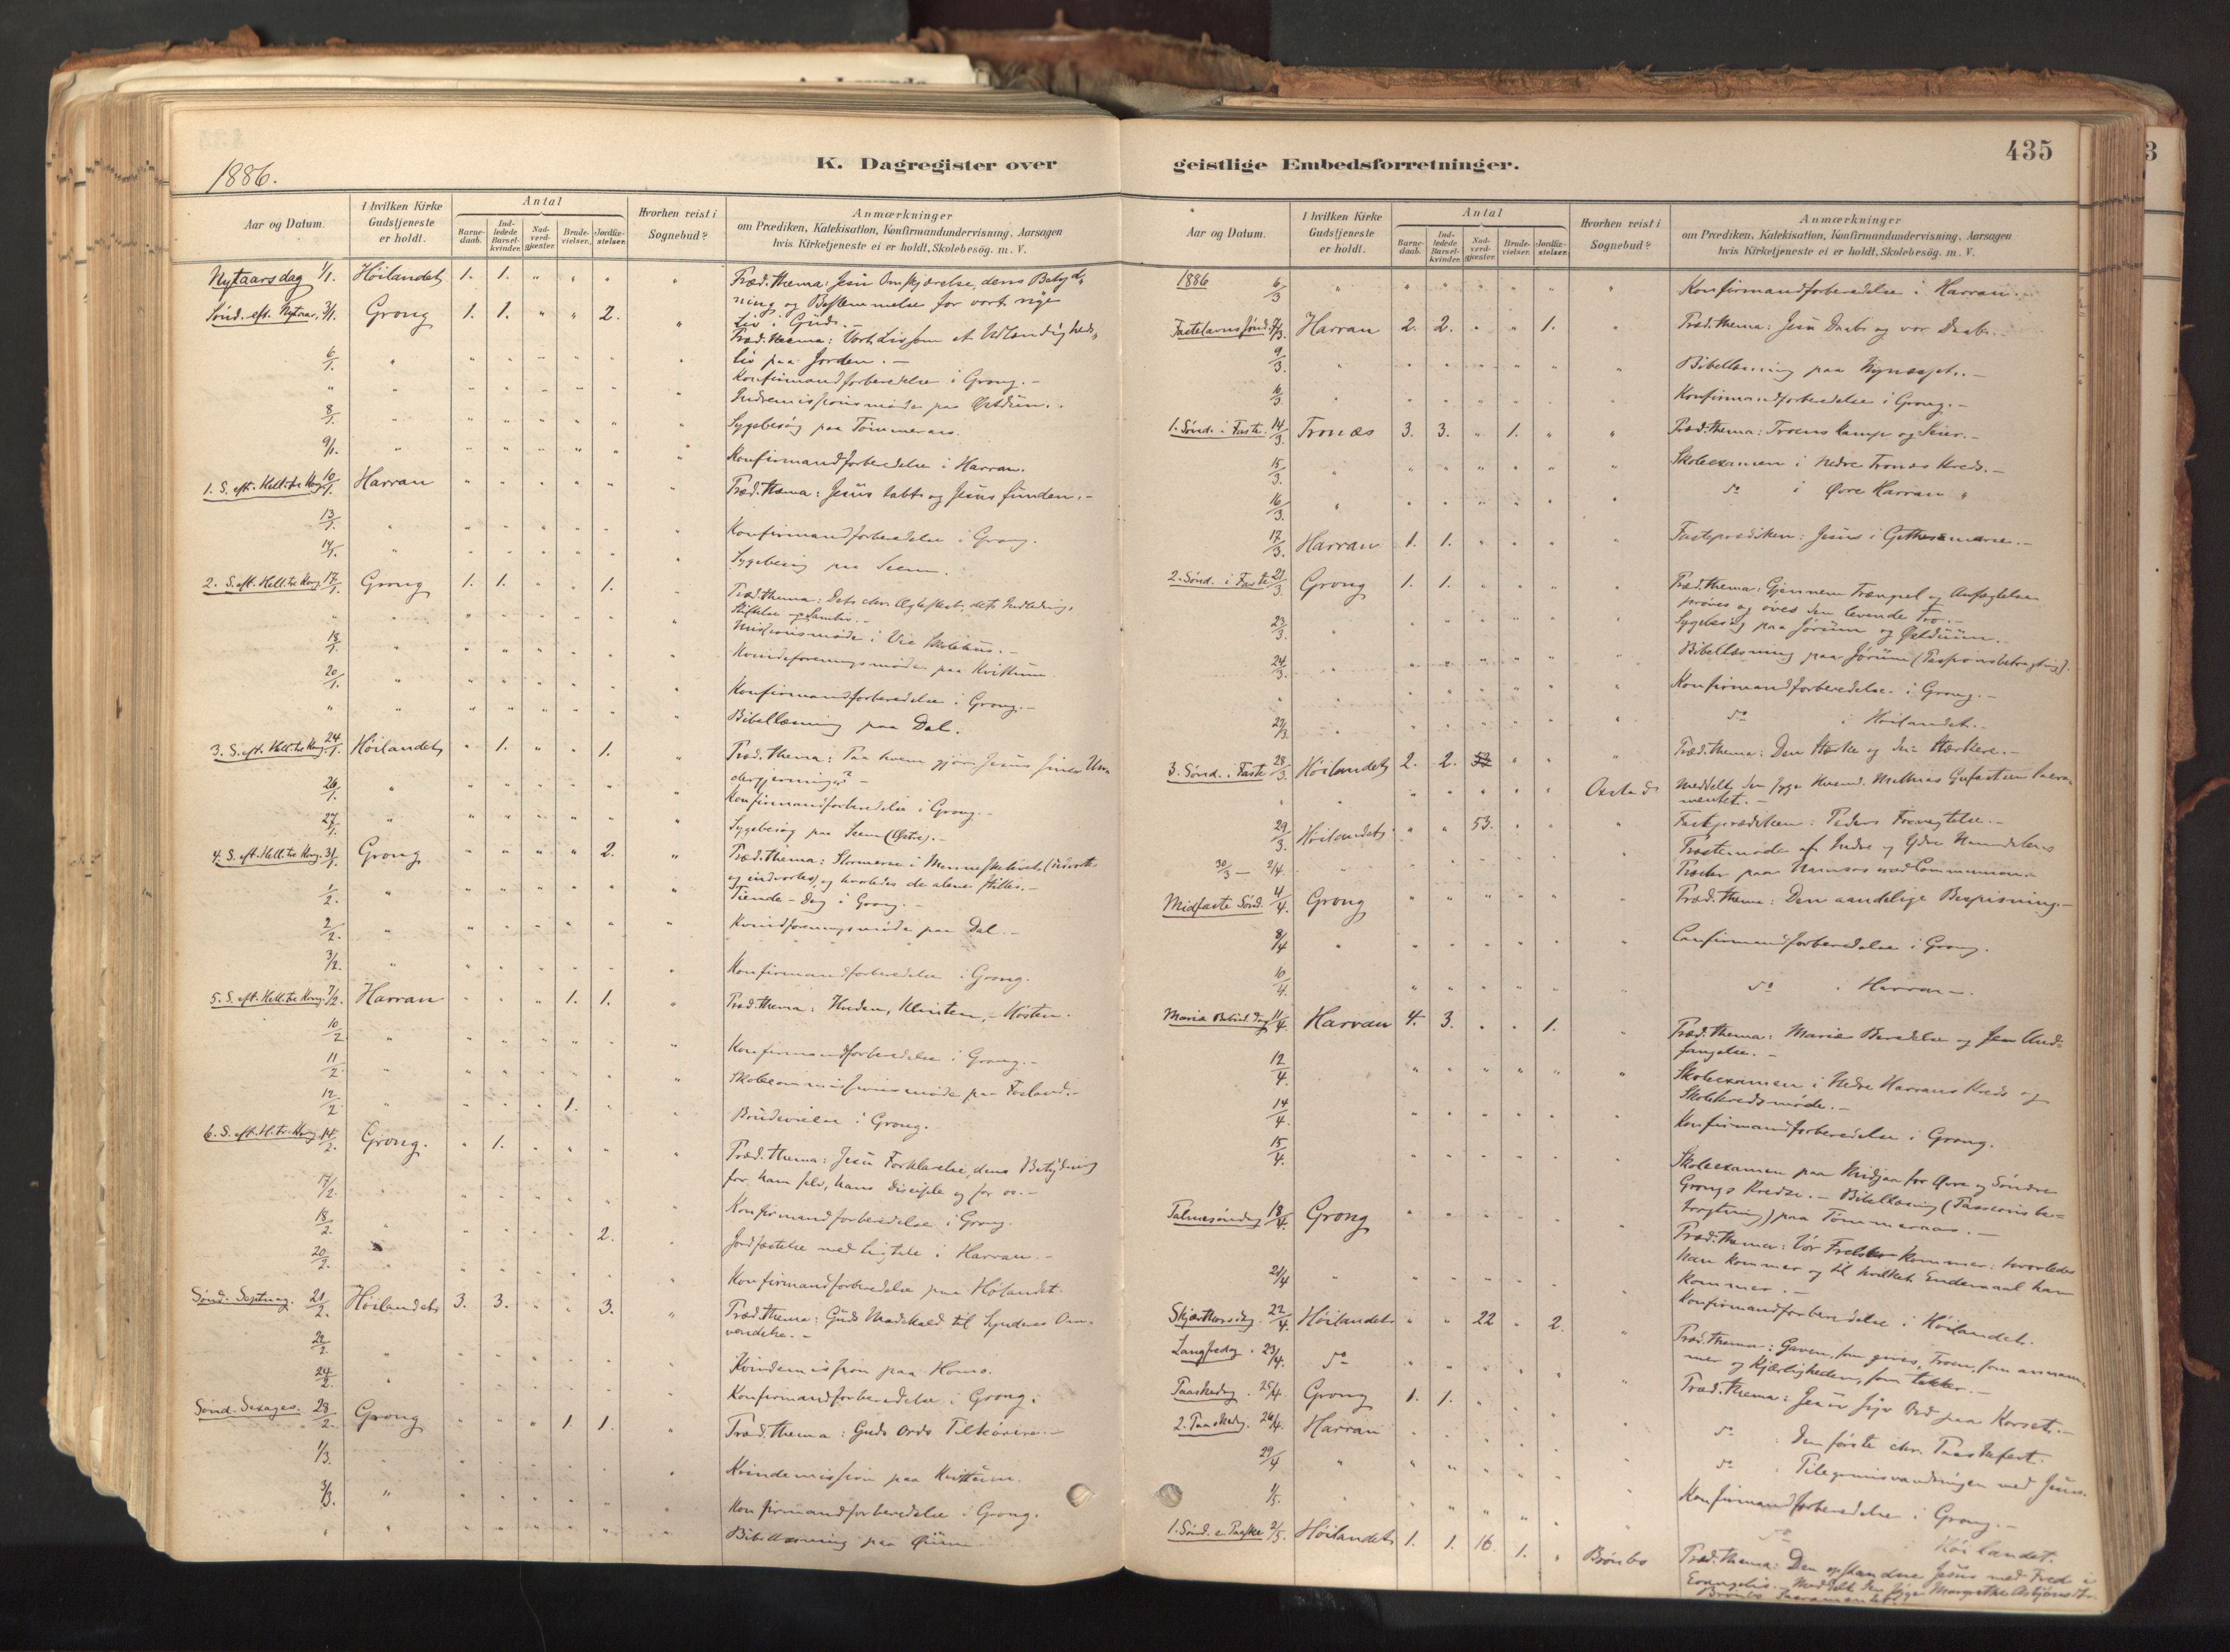 435
1886.
K. Dagregister over
Aar og Datum.
I hvilken Kirke Gudstjeneste er holdt.
Antal
Barnedaab.
Indledede Barselkvinder.
Nadverdgjæster.
Brudevielser.
Jordfæstelser.
Hvorhen reist i Sognebud?
Anmærkninger
om Prædiken, Katekisation, Konfirmandundervisning, Aarsagen
hvis Kirketjeneste ei er holdt, Skolebesög. m. V.
Nytaarsdag 1/1. Höilandet 1. 1. " " " " Præd. thema: Jesu Omskjærelse, dens Betyd-
ning og Bestemmelse for vort nye
Liv i Gud. -
Sönd. eft. Nytaar, 3/1. Grong 1. 1. " " 2. " Præd. thema: Vort Liv som et Udlændigheds-
liv paa Jorden. -
6/1. Konfirmandforberedelse i Grong. -
Indremissionsmöde paa
8/1. Sygebesög paa Tömmeraas.
9/1. Konfirmandforberedelse i Harran.
1. S. eft. Hell. tre Kong. 10/1. Harran Præd. thema: Jesus tabt og Jesus funden. -
13/1. Konfirmandforberedelse i Grong.
14/1. Sygebesög paa Seem.
2. S. eft. Hell. tre Kong. 17/1. Grong 1. 1. " " 1. Præd. thema: Det chr. Ægteskab, dets Indledning,
Stiftelse og Samliv. -
Missionsmöde i Vie Skolehus. -
18/1. Kvindeforeningsmöde paa
20/1. Konfirmandforberedelse i Grong. -
Bibellæsning paa Dal.
3. S. eft. Hell. tre Kong. 24/1. Höilandet " 1. " " 1. Præd. thema: Paa hvem gjör Jesus sine Un-
dergjerninger? -
26/1. Konfirmandforberedelse i Grong. -
27/1. Sygebesög paa Seem (Östre). -
4. S. eft. Hell. tre Kong. 31/1. Grong " " " " 2. Præd. thema: Stormene i Menneskelivet (udvortes
og indvortes) og hvorledes de alene stilles. -
1/2. Tiende-Dag i Grong. -
2/2. Kvindeforeningsmöde paa Dal. -
3/2. Konfirmandforberedelse i Grong.
5. S. eft. Hell. tre Kong. 7/2. Harran " " " 1. 1. Præd. thema: Hveden, Klinten, - Hösten.
10/2 Konfirmandforberedelse i Grong. -
11/2 Skolecommissionsmöde paa Fosland. -
12/2 1. Brudevielse i Grong.
6. S. eft. H. tre Kong. 14/2. Grong. " 1. Præd. thema: Jesu Forklarelse, dens Betydning
for ham selv, hans Disciple og for os. -
17/2. Konfirmandforberedelse i Grong.
18/2. 2. Jordfæstelse med Ligtale i Harran. -
20/2. Konfirmandforberedelse paa Hölandet.
Sönd. Septuag. 21/2. Höilandet 3. 3. " " 3. Præd. thema: Guds Naadekald til Synderes Om-
vendelse. -
22/2. Kvindemission paa Homo.
24/2. Konfirmandforberedelse i Grong.
Sönd. Sexages. 28/2. Grong " " " 1. 1. Præd. thema: Guds Ords Tilhörere. -
1/3. Kvindemission paa
3/3. Konfirmandforberedelse i Grong.
Bibellæsning paa
geistlige Embedsforretninger.
Aar og Datum.
I hvilken Kirke Gudstjeneste er holdt.
Antal
Barnedaab.
Indledede Barselkvinder.
Nadverdgjæster.
Brudevielser.
Jordfæstelser.
Hvorhen reist i Sognebud?
Anmærkninger
om Prædiken, Katekisation, Konfirmandundervisning, Aarsagen
hvis Kirketjeneste ei er holdt, Skolebesög. m. V.
1886 6/3 Konfirmandforberedelse i Harran. -
Fastelavnssönd. 7/3. Harran 2. 2. " " 1. Præd. thema: Jesu Daab og vor Daab. -
9/3. Bibellæsning paa
10/3. Konfirmandforberedelse i Grong. -
1. Sönd. i Faste. 14/3. Tronæs 3. 3. " 1. Præd. thema: Troens Kamp og Seier. -
15/3. Skoleexamen i Nedre Tronæs Kreds. -
16/3. do i Övre Harran "
17/3. Harran 1. 1. Fasteprædiken: Jesus i Gethsemane. -
2. Sönd. i Faste 21/3. Grong 1. 1. Præd. thema: Gjennem Trængsel og Anfægtelse
pröves og öves den levende Tro. -
23/3. Sygebesög paa Jörum og
24/3. Bibellæsning paa Jörum (Passionsbetragtning).
Konfirmandforberedelse i Grong. -
27/3. do i Höilandet. -
3. Sönd. i Faste 28/3. Höilandet 2. 2. Præd. thema: Den Stærke og den Stærkere. -
Meddelt den syge
mentet. -
29/3. Höilandet " " 53. Fasteprædiken: Peders Fornegtelse. -
30/3 - 2/4. Præstemöde af Indre og Ydre Namdalens
Præster paa Namsos med Communion.
Midfaste Sönd. 4/4. Grong Præd. thema: Den aandelige Bespisning. -
8/4 Confirmandforberedelse i Grong.
10/4. do i Harran.
Mariæ Bebud. Dag 11/4. Harran 4. 3. " " 1. Præd. thema: Mariæ Bered­else og Jesu Und-
fangelse. -
12/4. Skoleexamen i Nedre Harrans Kreds og
Skolekredsmöde. -
14/4. Konfirmandforberedelse i Grong.
15/4. Skoleexamen paa for Övre og Söndre
Grongs Kredse. - Bibellæsning (Passionsbe-
tragtning) paa Tömmeraas. -
Palmesöndag 18/4. Grong Præd. thema: Vor Frelser kommer: hvorledes
han kommer og til hvilket Endemaal han
kommer. -
21/4 Konfirmandforberedelse i Höilandet.
Skjærthorsdag. 22/4. Höilandet " " 22 " 2. Præd. thema: Gaven, som gives, Troen, som annam-
mer og Kjærligheden, som takker. -
Langfredag. 23/4. do Præd. thema: Jesu syv Ord paa Korset. -
Paaskedag. 25/4. Grong 1. 1. do: Den förste chr. Paaskefest.
2. Paaskedag. 26/4. Harran do: Pilegrimsvandringen med Jesus.
29/4 Konfirmandforberedelse i Grong. -
1/5. do i Höilandet.
1. Sönd. e. Paaske 2/5. Höilandet 1. 1. 16. 1. " Brönbo Præd. thema: Den opstandne Jesus med Fred i
Evangelio. - Meddelt den syge Margrethe
Brönbo Sacramentet.